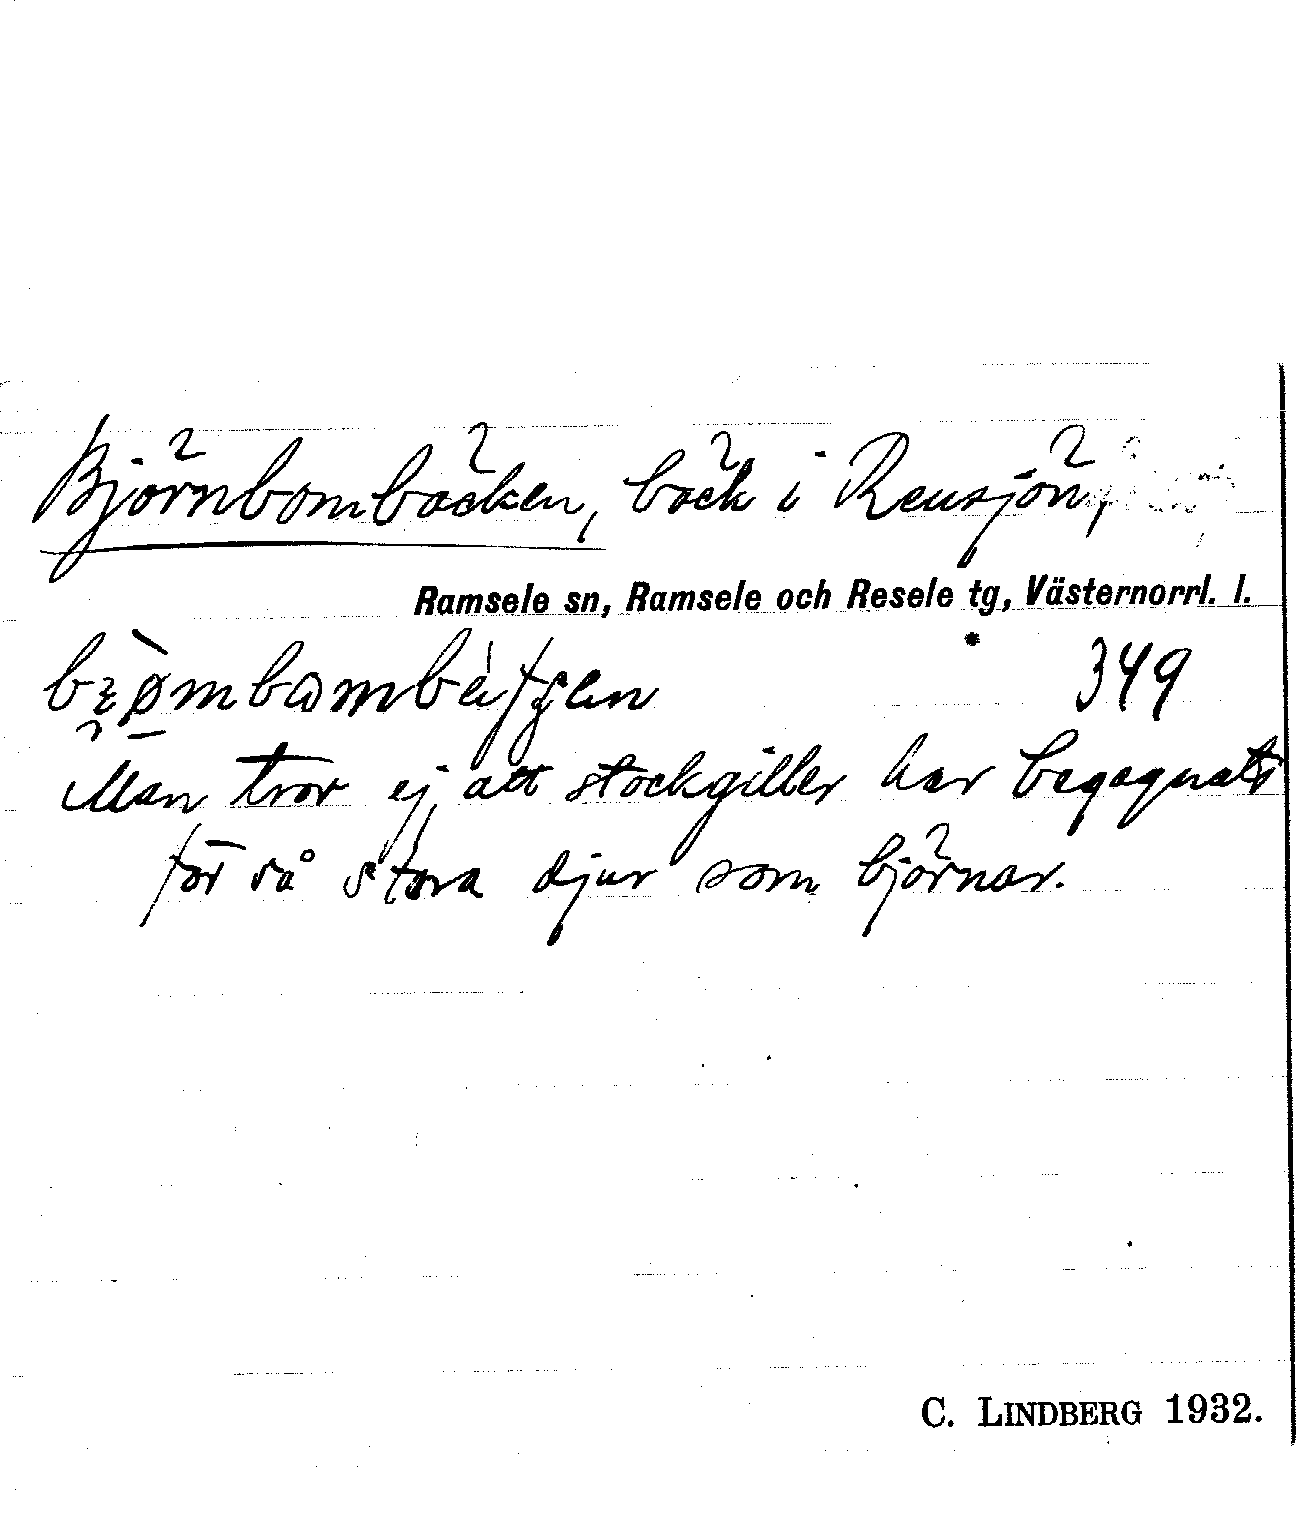 Björnbombäcken, bäck i Rensjön,
Ramsele sn, Ramsele och Resele tg, Västernorrl. l.
349
Man tror ej att stockgiller har begagnats
för så stora djur som björnar.
C. LINDBERG 1932.